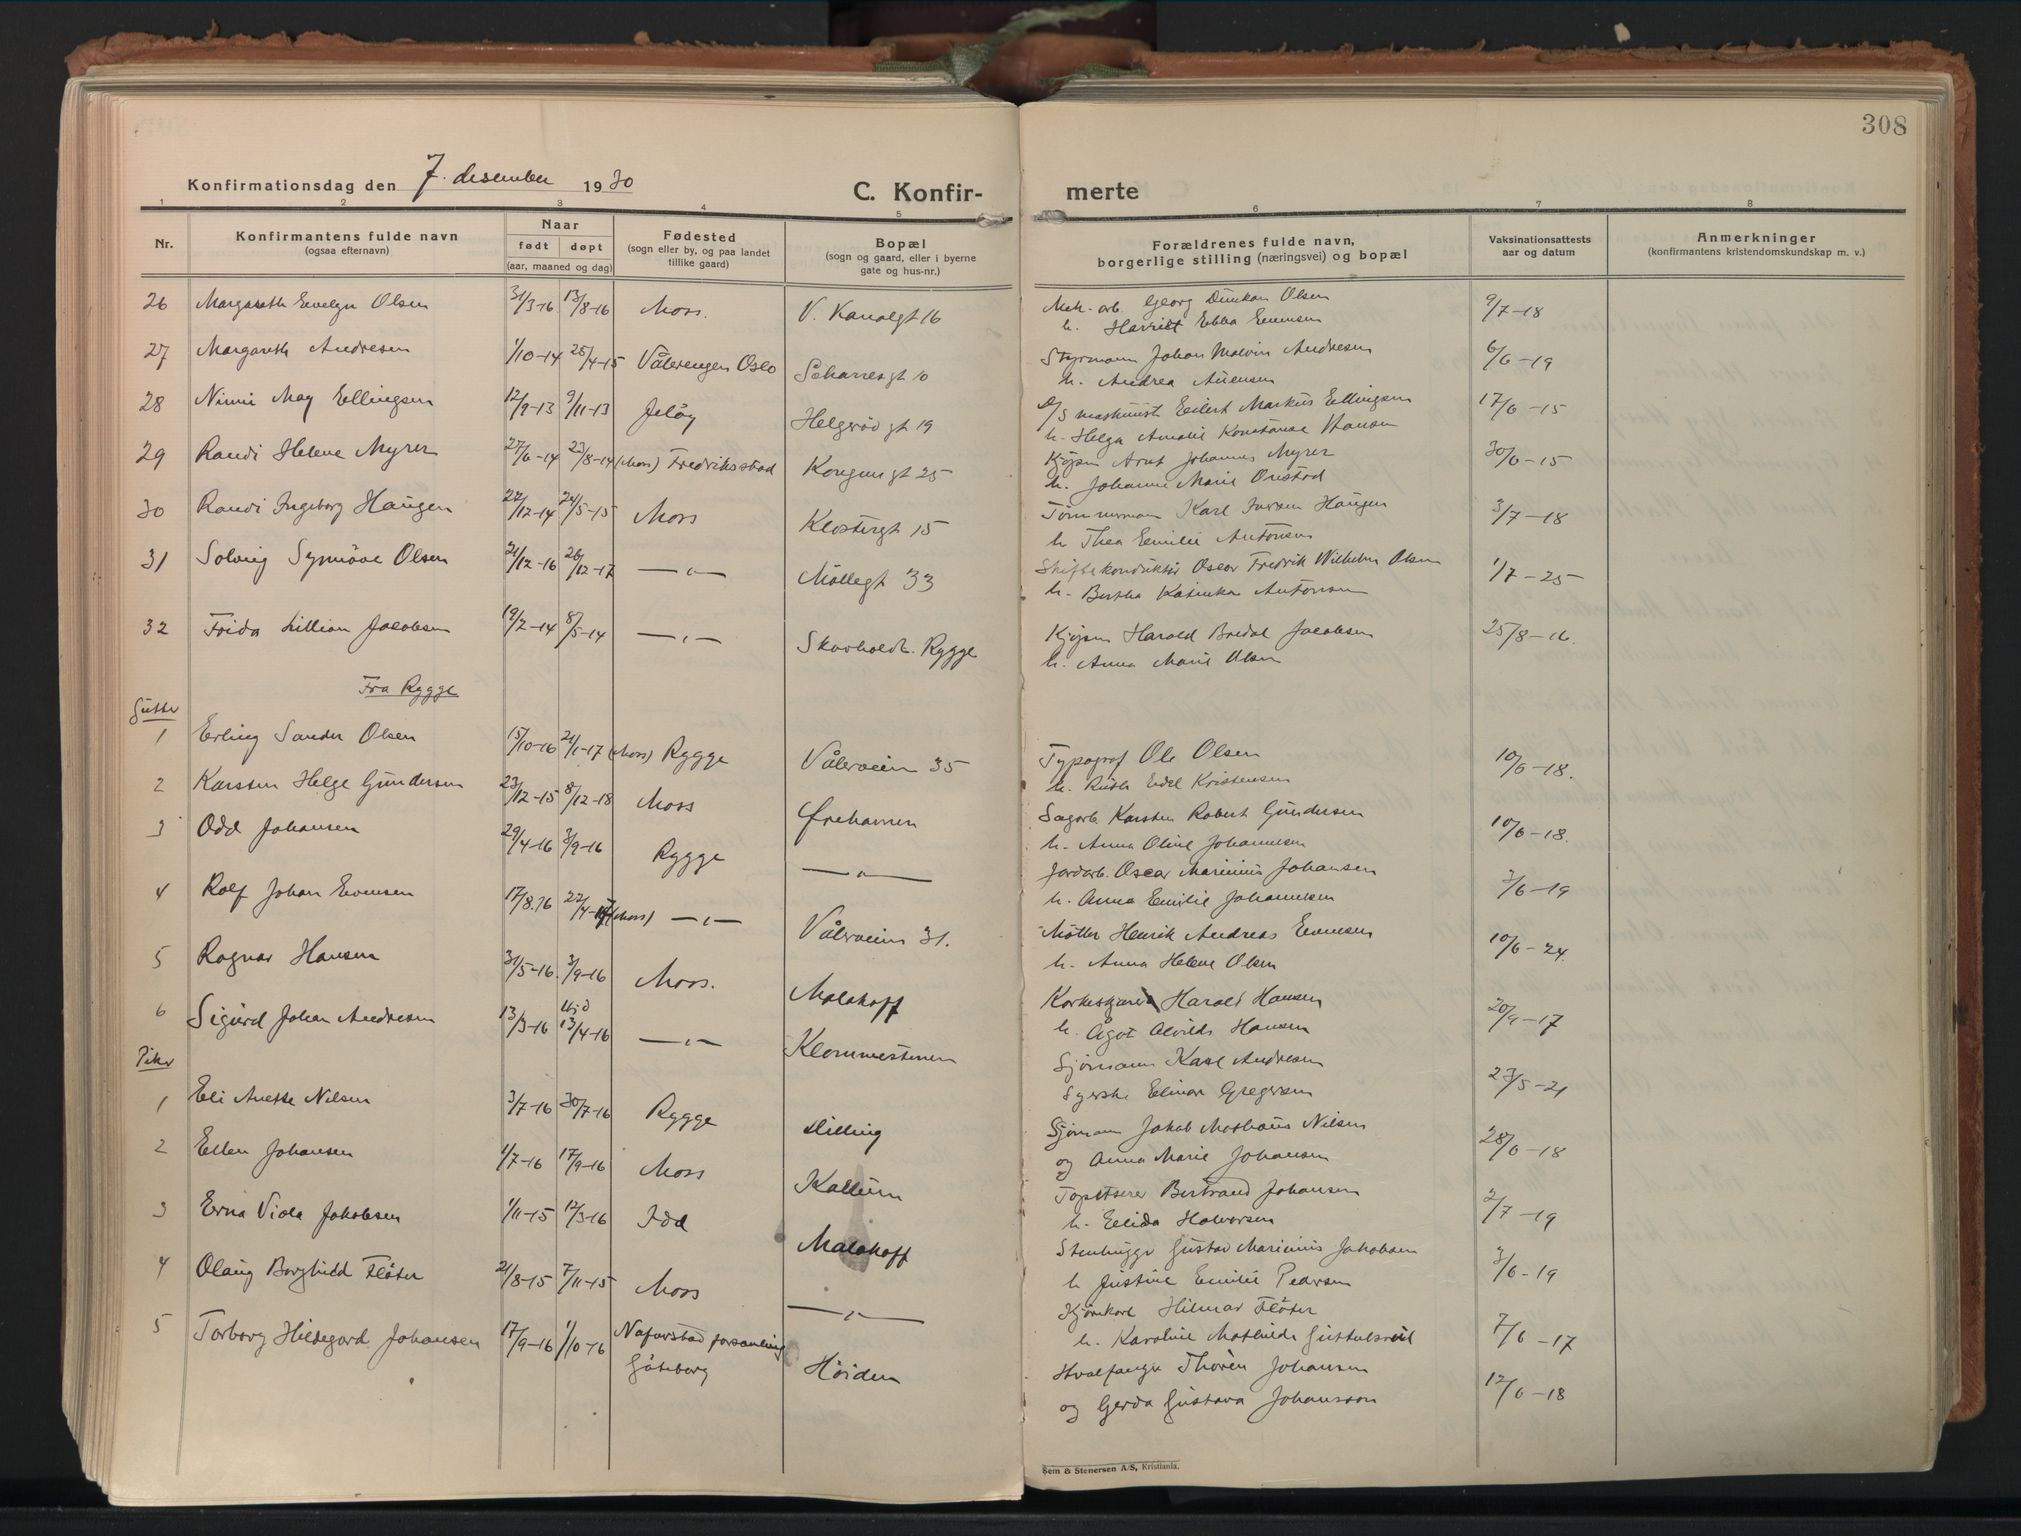 308
Konfirmationsdag den 7. desember 1930
C. Konfirmerte
1 2 3 4 5 6 7 8
Nr.
Konfirmantens fulde navn
(ogsaa efternavn)
Naar
født døpt
(aar, maaned og dag)
Fødested
(sogn eller by, og paa landet
tillike gaard)
Bopæl
(sogn og gaard, eller i byerne
gate og hus-nr.)
Forældrenes fulde navn,
borgerlige stilling (næringsvei) og bopæl
Vaksinationsattests
aar og datum
Anmerkninger
(konfirmantens kristendomskundskap m. v.)
26 Margareth Evelyn Olsen 31/3-16 13/8-16 Moss. V. Kanalgt 16 Mek. arb. Georg Dunkan Olsen 9/7-18
h. Harriet Ebba Evensen
27 Margareth Andresen 1/10-14 25/4-15 Vålerengen Oslo gt 10 Styrmann Johan Malvin Andresen 6/6-19
h. Andrea
28 May Ellingsen 12/9-13 9/11-13 Jeløy Helgerød gt 19 D/S maskinist Eilert Markus Ellingsen 17/6-15
h. Helga Amalie Konstanse Hansen
29 Randi Helene Myrer 27/6-14 23/8-14 (Moss) Fredriksstad Kongensgt 25 Kjøpm Arnt Johannes Myrer 30/6-15
h. Johanne Marie Onstad
30 Randi Ingeborg Haugen 22/12-14 24/5-15 Moss Klostergt 15 Tømmermann Karl Iversen Haugen 3/7-18
h Thea Emilie Antonsen
31 Solveig Synnøve Olsen 21/12-16 26/12-17 —„— Møllegt 33 Skiftekonduktør Oscar Fredrik Wilhelm Olsen 1/7-25
h. Bertha Katinka Antonsen
32 Frida Lillian Jacobsen 19/2-14 8/5-14 —„— Rygge Kjøpm Harald Bredal Jacobsen 25/8-16.
h. Anna Marie Olsen
Fra Rygge
Gutter
1 Erling Sander Olsen 15/10-16 21/1-17 (Moss) Rygge Vålerveien 35 Typograf Ole Olsen 10/6-18.
h. Ruth Kristensen
2 Karsten Helge Gundersen 23/12-15 8/12-18 Moss Ørehavnen Sagarb Karsten Robert Gundersen 10/6-18.
h. Anna Oline Johannesen
3 Odd Johansen 29/4-16 3/9-16 Rygge —„— Jordarb. Oscar Marinius Johansen 3/6-19
h. Anna Emilie Johannesen
4 Rolf Johan Evensen 17/8.16 22/4-17 (Moss) —„— Vålerveien 31. Møller Henrik Andreas Evensen 10/6-24.
h. Anna Helene Olsen
5 Ragnar Hansen 31/5-16. 3/9-16 Moss. Malakoff Korkeskjærer Harald Hansen 20/9-17
h. Ågot Alvilde Hansen
6 Sigurd Johan Andresen 13/3-16 Hjd 13/4-16 —„— Klommestenen Sjømann Karl Andresen 27/5-21
Syerske Elinar Gregersen
Piker
1 Eli Anette Nilsen 3/7-16 30/7-16 Rygge Dilling Sjømann Jakob Mathæus Nilsen 28/6-18
og Anna Marie Johansen
2 Ellen Johansen 1/7-16 17/9-16 Moss Kallum Tapetserer Bertrand Johansen 2/7-19
h. Elida Halvorsen
3 Erna Viola Jakobsen 1/11-15 12/3-16 Idd Malakoff Stenhugger Gustav Marinius Jakobsen 3/6-19
h Justine Emilie Pedersen
4 Olaug Borghild Fløter 21/8-15 7/11-15 Moss —„— Kjørekarl Hilmar Fløter 7/6-17
h. Karoline Mathilde
5 Torborg Hildegard Johansen 17/9-16 1/10-16 forsamling Høiden Hvalfanger Thorèn Johansen 12/6-18
Göteborg og Gerda Gustava Johansson
Sem & Stenersen A/S, Kristiania.